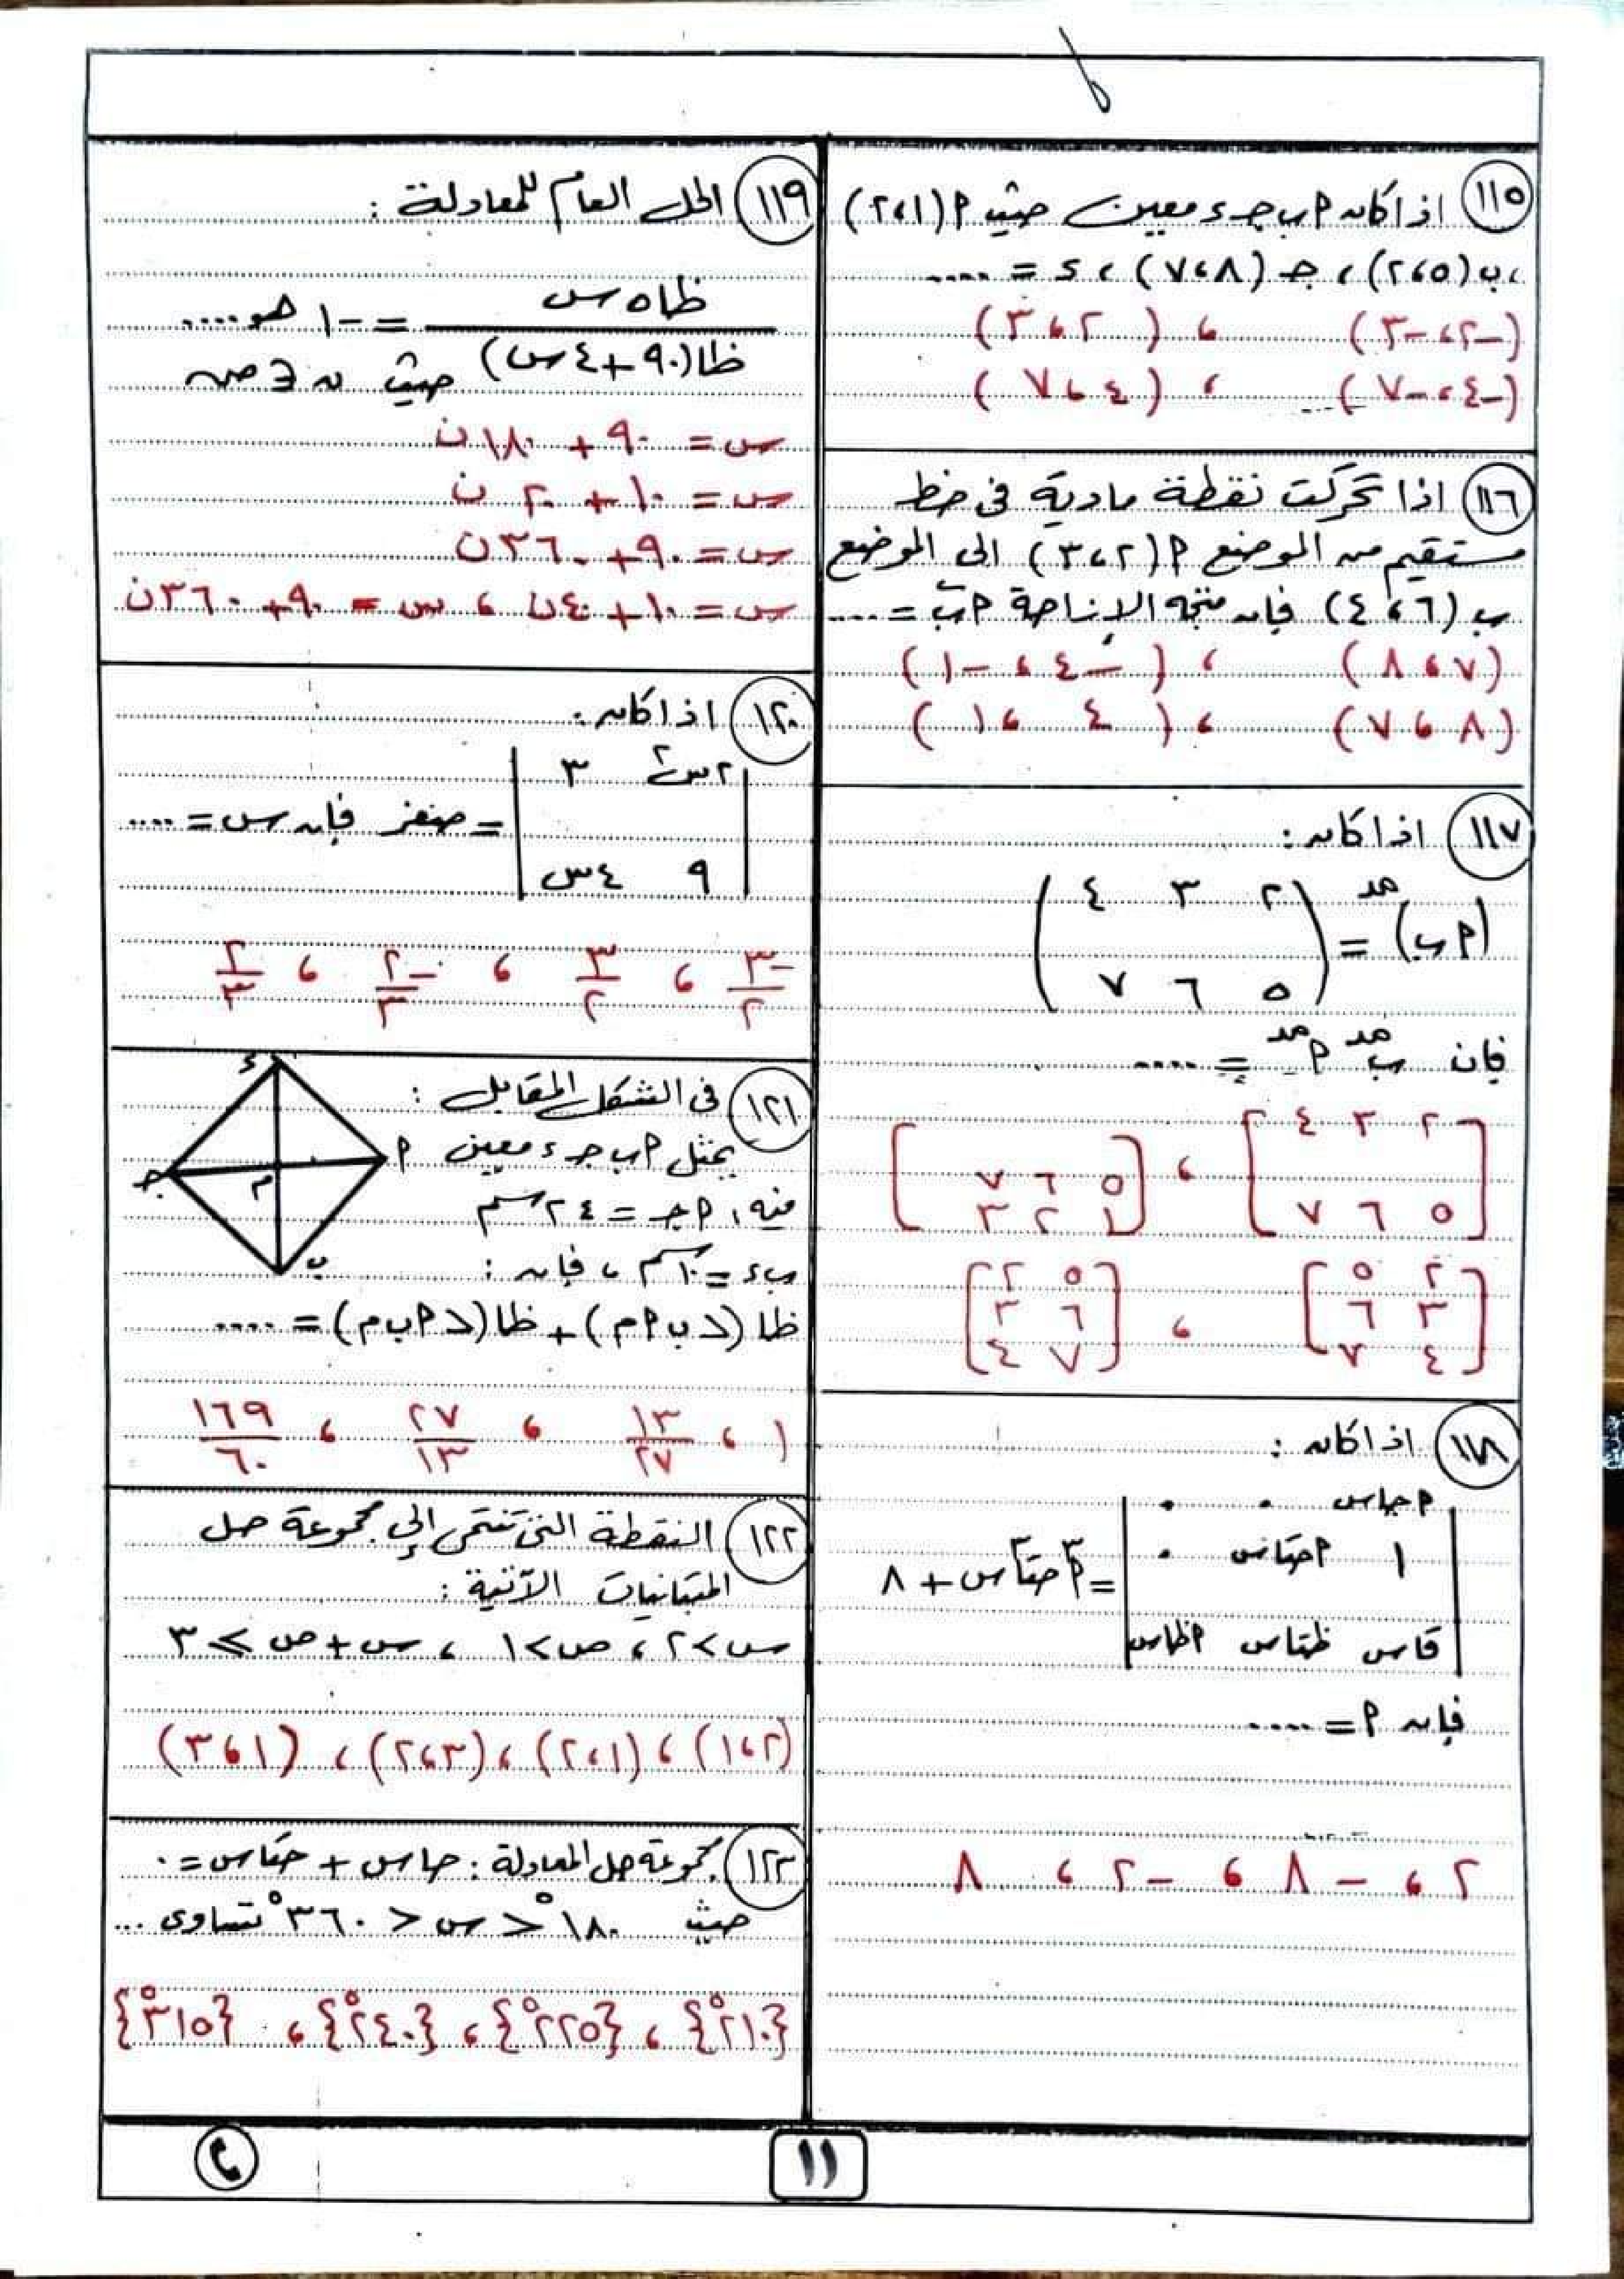 ١١٥ اذا كان أ ب جـ ء معين حيث أ (١،٢)
، ب (٥،٢) ، جـ (٨،٧) ، ء = ....
(-٢،-٣) ، (٢،٣)
(-٤،-٧) ، (٤،٧)
١١٦ اذا تحركت نقطة مادية فى خط
مستقيم من الموضع أ (٢،٣) الى الموضع
ب (٦،٤) فإن متجه الازاحة أب = ....
(٧،٨) ، (-٤،-١)
(٨،٧) ، (٤،١)
١١٧ اذا كان :
(أ ب)مد = ( ٢ ٣ ٤
٥ ٦ ٧ )
فإن بمد أمد = ....
[ ٢ ٣ ٤ ، [ ٥ ٦ ٧
٥ ٦ ٧ ] ١ ٢ ٣ ]
[ ٢ ٥ ، [ ٥ ٢
٣ ٦ ٦ ٣
٤ ٧ ] ٧ ٤ ]
١١٨ اذا كان :
| أجاس ٠ ٠ |
| ١ أجتاس ٠ | = أ٣ جتا٢س + ٨
| قاس ظتاس أظاس |
فإن أ = ....
٢ ، -٨ ، -٢ ، ٨
١١٩ الحل العام للمعادلة :
ظا ٥ س
ــــــــ = -١ هو ....
ظا (٩٠+٤س) حيث ن ∈ صـ
س = ٩٠ + ١٨٠ ن
س = ١٠ + ٢٠ ن
س = ٩٠ + ٣٦٠ ن
س = ١٠ + ٤٠ ن ، س = ٩٠ + ٣٦٠ ن
١٢٠ اذا كان :
| ٢س٢ ٣ |
= صفر فإن س = ....
| ٩ ٤س |
-٣/٢ ، ٣/٢ ، -٢/٣ ، ٢/٣
١٢١ فى الشكل المقابل :
يمثل أ ب جـ ء معين
فيه ، أ جـ = ٢٤ سم
ب ء = ١٠ سم ، فإن :
ظا (> ب أ م) + ظا (> أ ب م) = ....
١ ، ١٣/٢٧ ، ٢٧/١٣ ، ١٦٩/٦٠
ء
أ
م
جـ
ب
١٢٢ النقطة التى تنتمى إلى مجموعة حل
المتباينات الآتية :
س > ٢ ، ص > ١ ، س + ص ≥ ٣
(٢،١) ، (١،٢) ، (٣،٢) ، (١،٣)
١٢٣ مجموعة حل المعادلة : جاس + جتاس = ٠
حيث ١٨٠° < س < ٣٦٠° تساوى ...
{٢١٠°} ، {٢٢٥°} ، {٢٤٠°} ، {٣١٥°}
١١